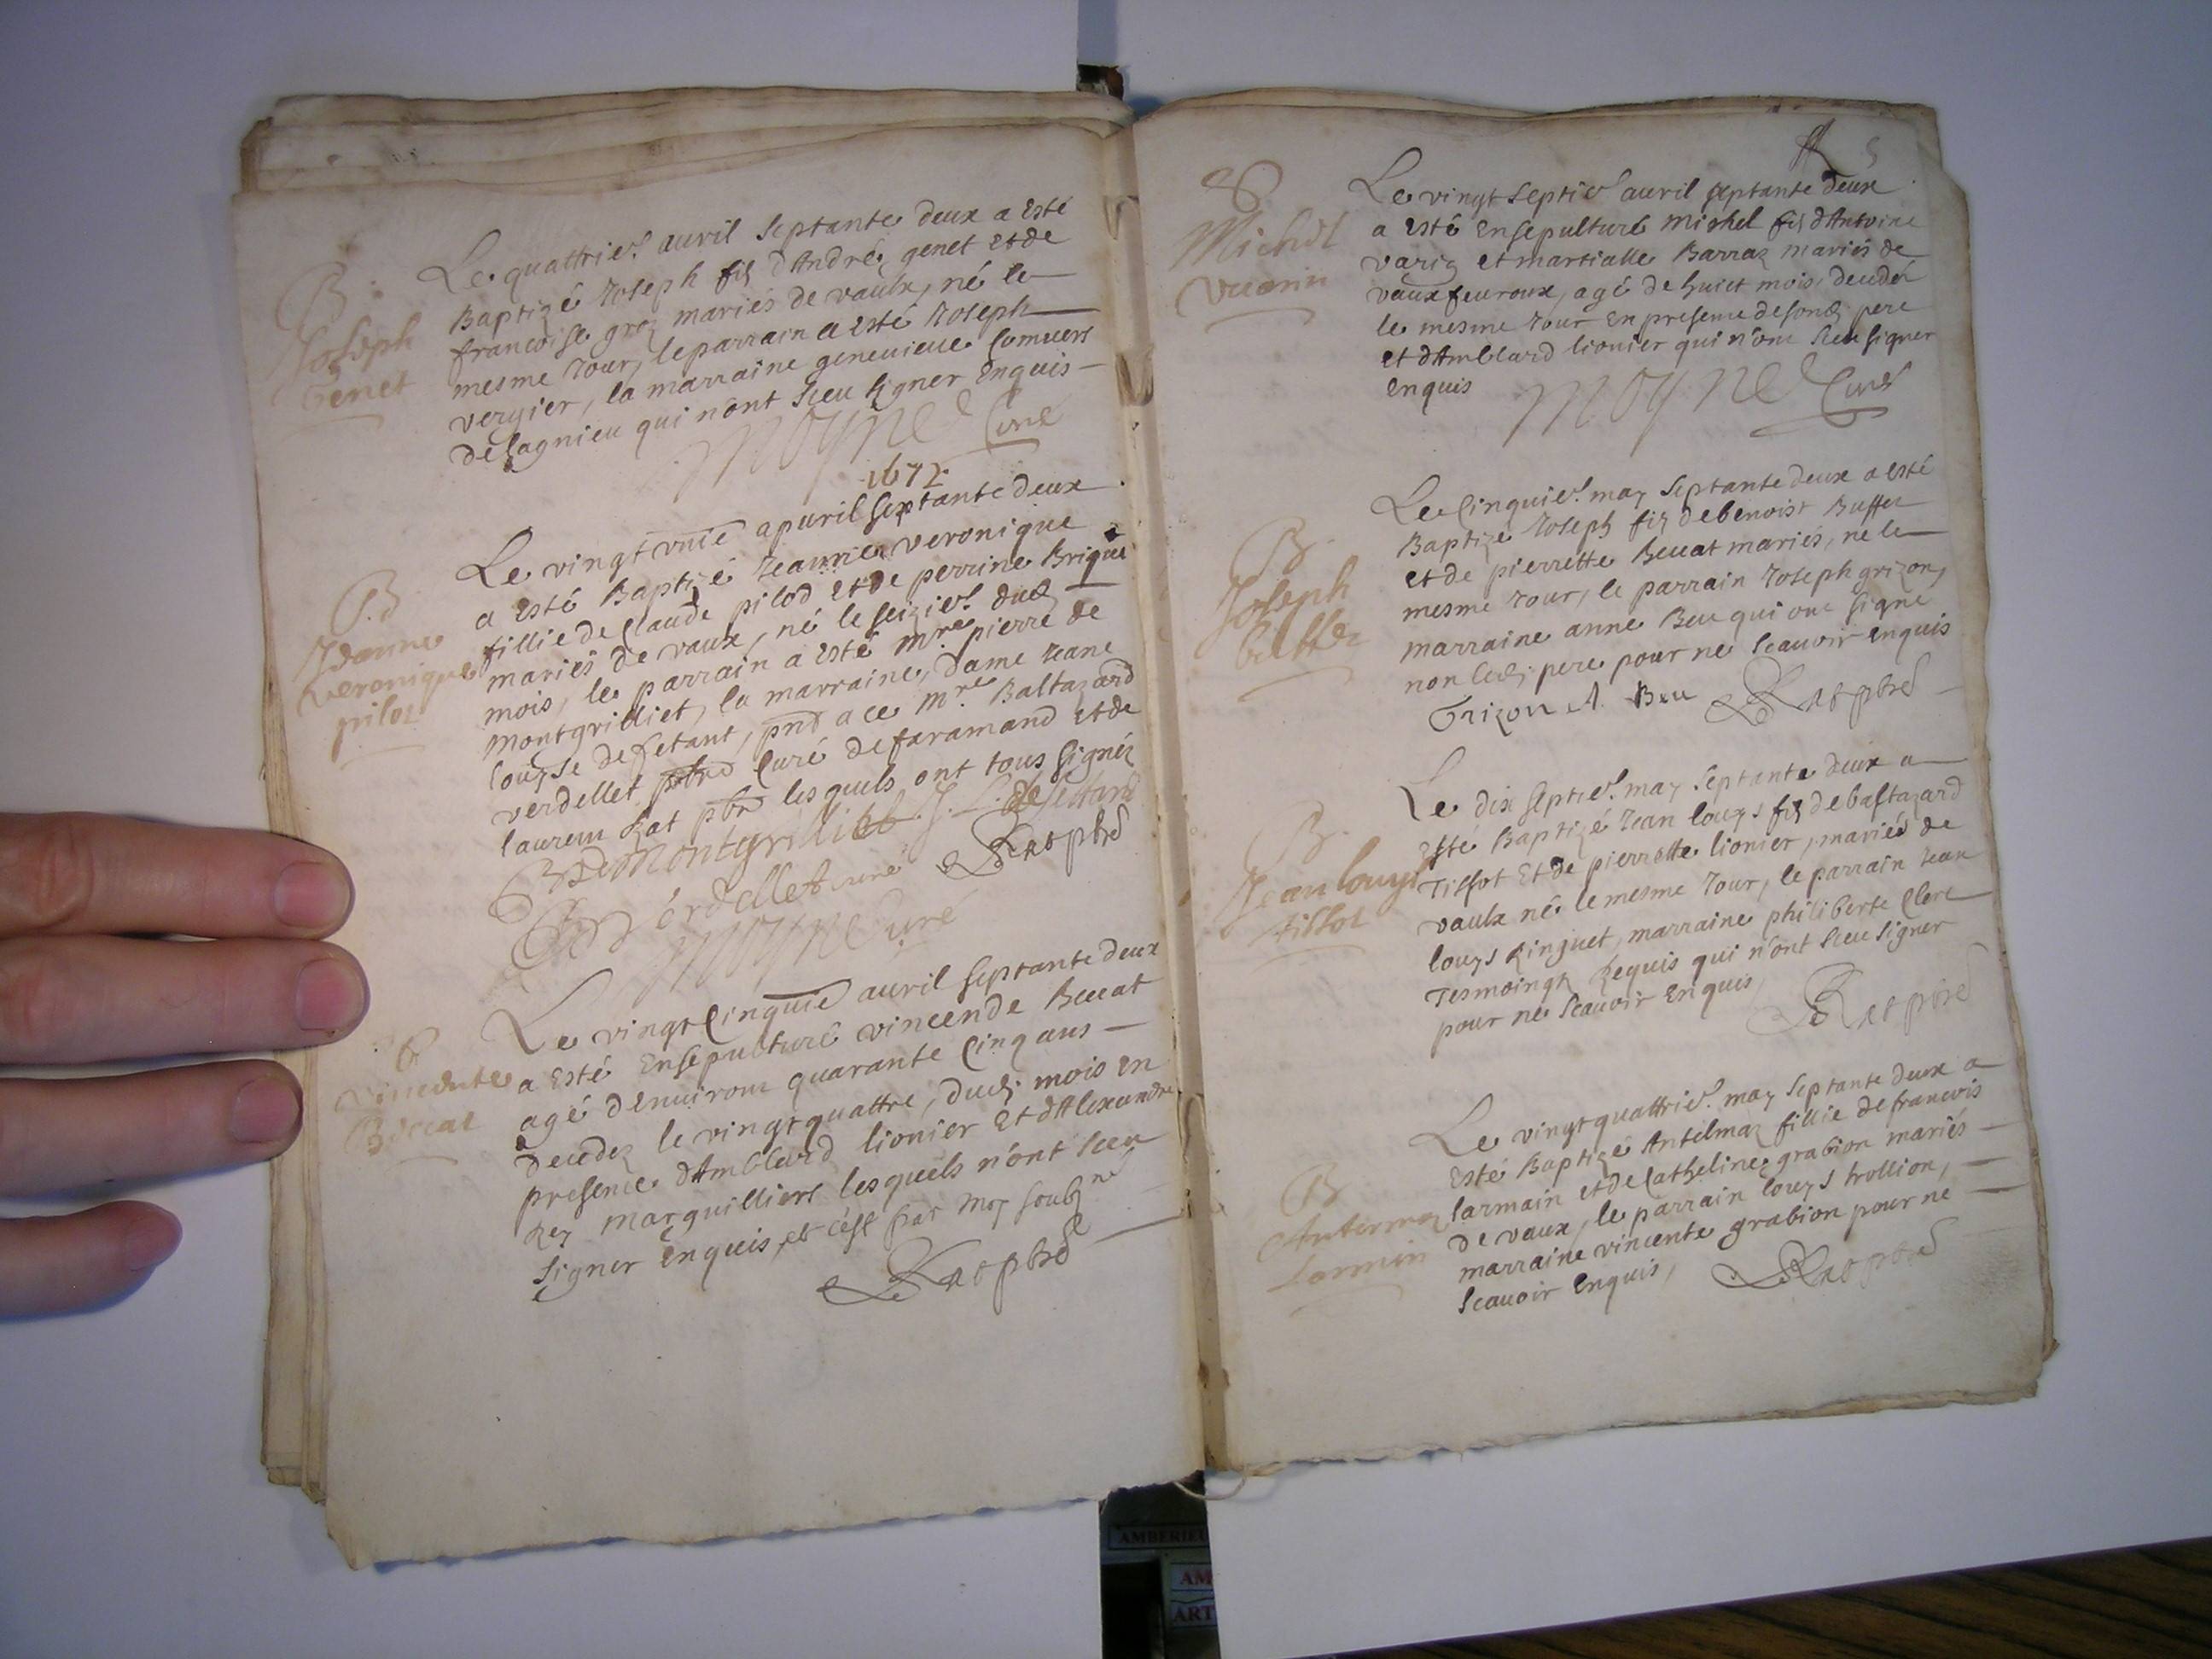 B.
Joseph
Genet
Le quattrie auril septante deux a esté
Baptizé Joseph fils d'André genet et de
francoise groz mariés de vaulx, né le
mesme Jour, le parrain a esté Joseph
vergier, la marraine genevieue Comuers
de lagnieu qui nont sceu signer Enquis
Moyne Curé
1672
B.
Jeanne
Veronique
piloz
Le vingt vnie apuril septante deux
a esté Baptizé Jeanne veronique
fillie de Claude pilod et de perrine Brique
mariés de vaux, né le seizie dud
mois, le parrain a esté Mre pierre de
Montgrilliet, la marraine, dame Jeane
louyse de setant, pnt a ce Mre Baltazard
verdellet pbre Curé de faramand et de
laurem Rat pbre lesquels ont tous signéz
De Montgrillet J. L. de Settant
Verdellet curé Rat pbre
Moyne Curé
Vincente
Beccat
Le vingt Cinquie auril septante deux
a esté Ensepulturé vincende Beccat
agé denuiron quarante Cinq ans
decedez le vingt quattre, dud mois en
presence d'Amblard lionier Et d'Alexandre
Rey Marguilliers lesquels n'ont sceu
signer Enquis, et cést par moy soubz né
Rat pbre
5
Michel
Vuarin
Le vingt septie auril septante deux
a esté ensepulturé Michel fils d'Antoine
variz et martialle Barraz mariés de
vauxfeuroux, agé de huict mois, decedé
le mesme Jour en presence de sond pere
et d'Amblard lionier qui n'ont sceu signer
enquis
Moyne Curé
B.
Joseph
buffez
Le Cinquie may septante deux a esté
Baptizé Joseph fils de benoist Buffet
et de pierrette Beccat mariés, né le
mesme Jour, le parrain Joseph grizon,
marraine anne Beu qui ont signé
non led pere pour ne scauoir enquis
Grizon A. Beu Rat pbre
B.
Jean louys
tissot
Le dix septie may septante deux a
esté Baptizé Jean louys fils de baltazard
Tissot Et de pierrette lionier, mariés de
vaulx né le mesme Jour, le parrain Jean
louys Ringuet, marraine philiberte Clerc
Tesmoingz Requis qui n'ont sceu signer
pour ne scauoir enquis,
Rat pbre
B.
Antermaz
Larmin
Le vingt quattrie may septante deux a
esté Baptizé Antelmaz fillie de francois
larmain et de Catheline grabion mariés
de vaux, le parrain louys trollion,
marraine vincente grabion pour ne
scauoir Enquis,
Rat pbre
AMBERIEU
AM
ART